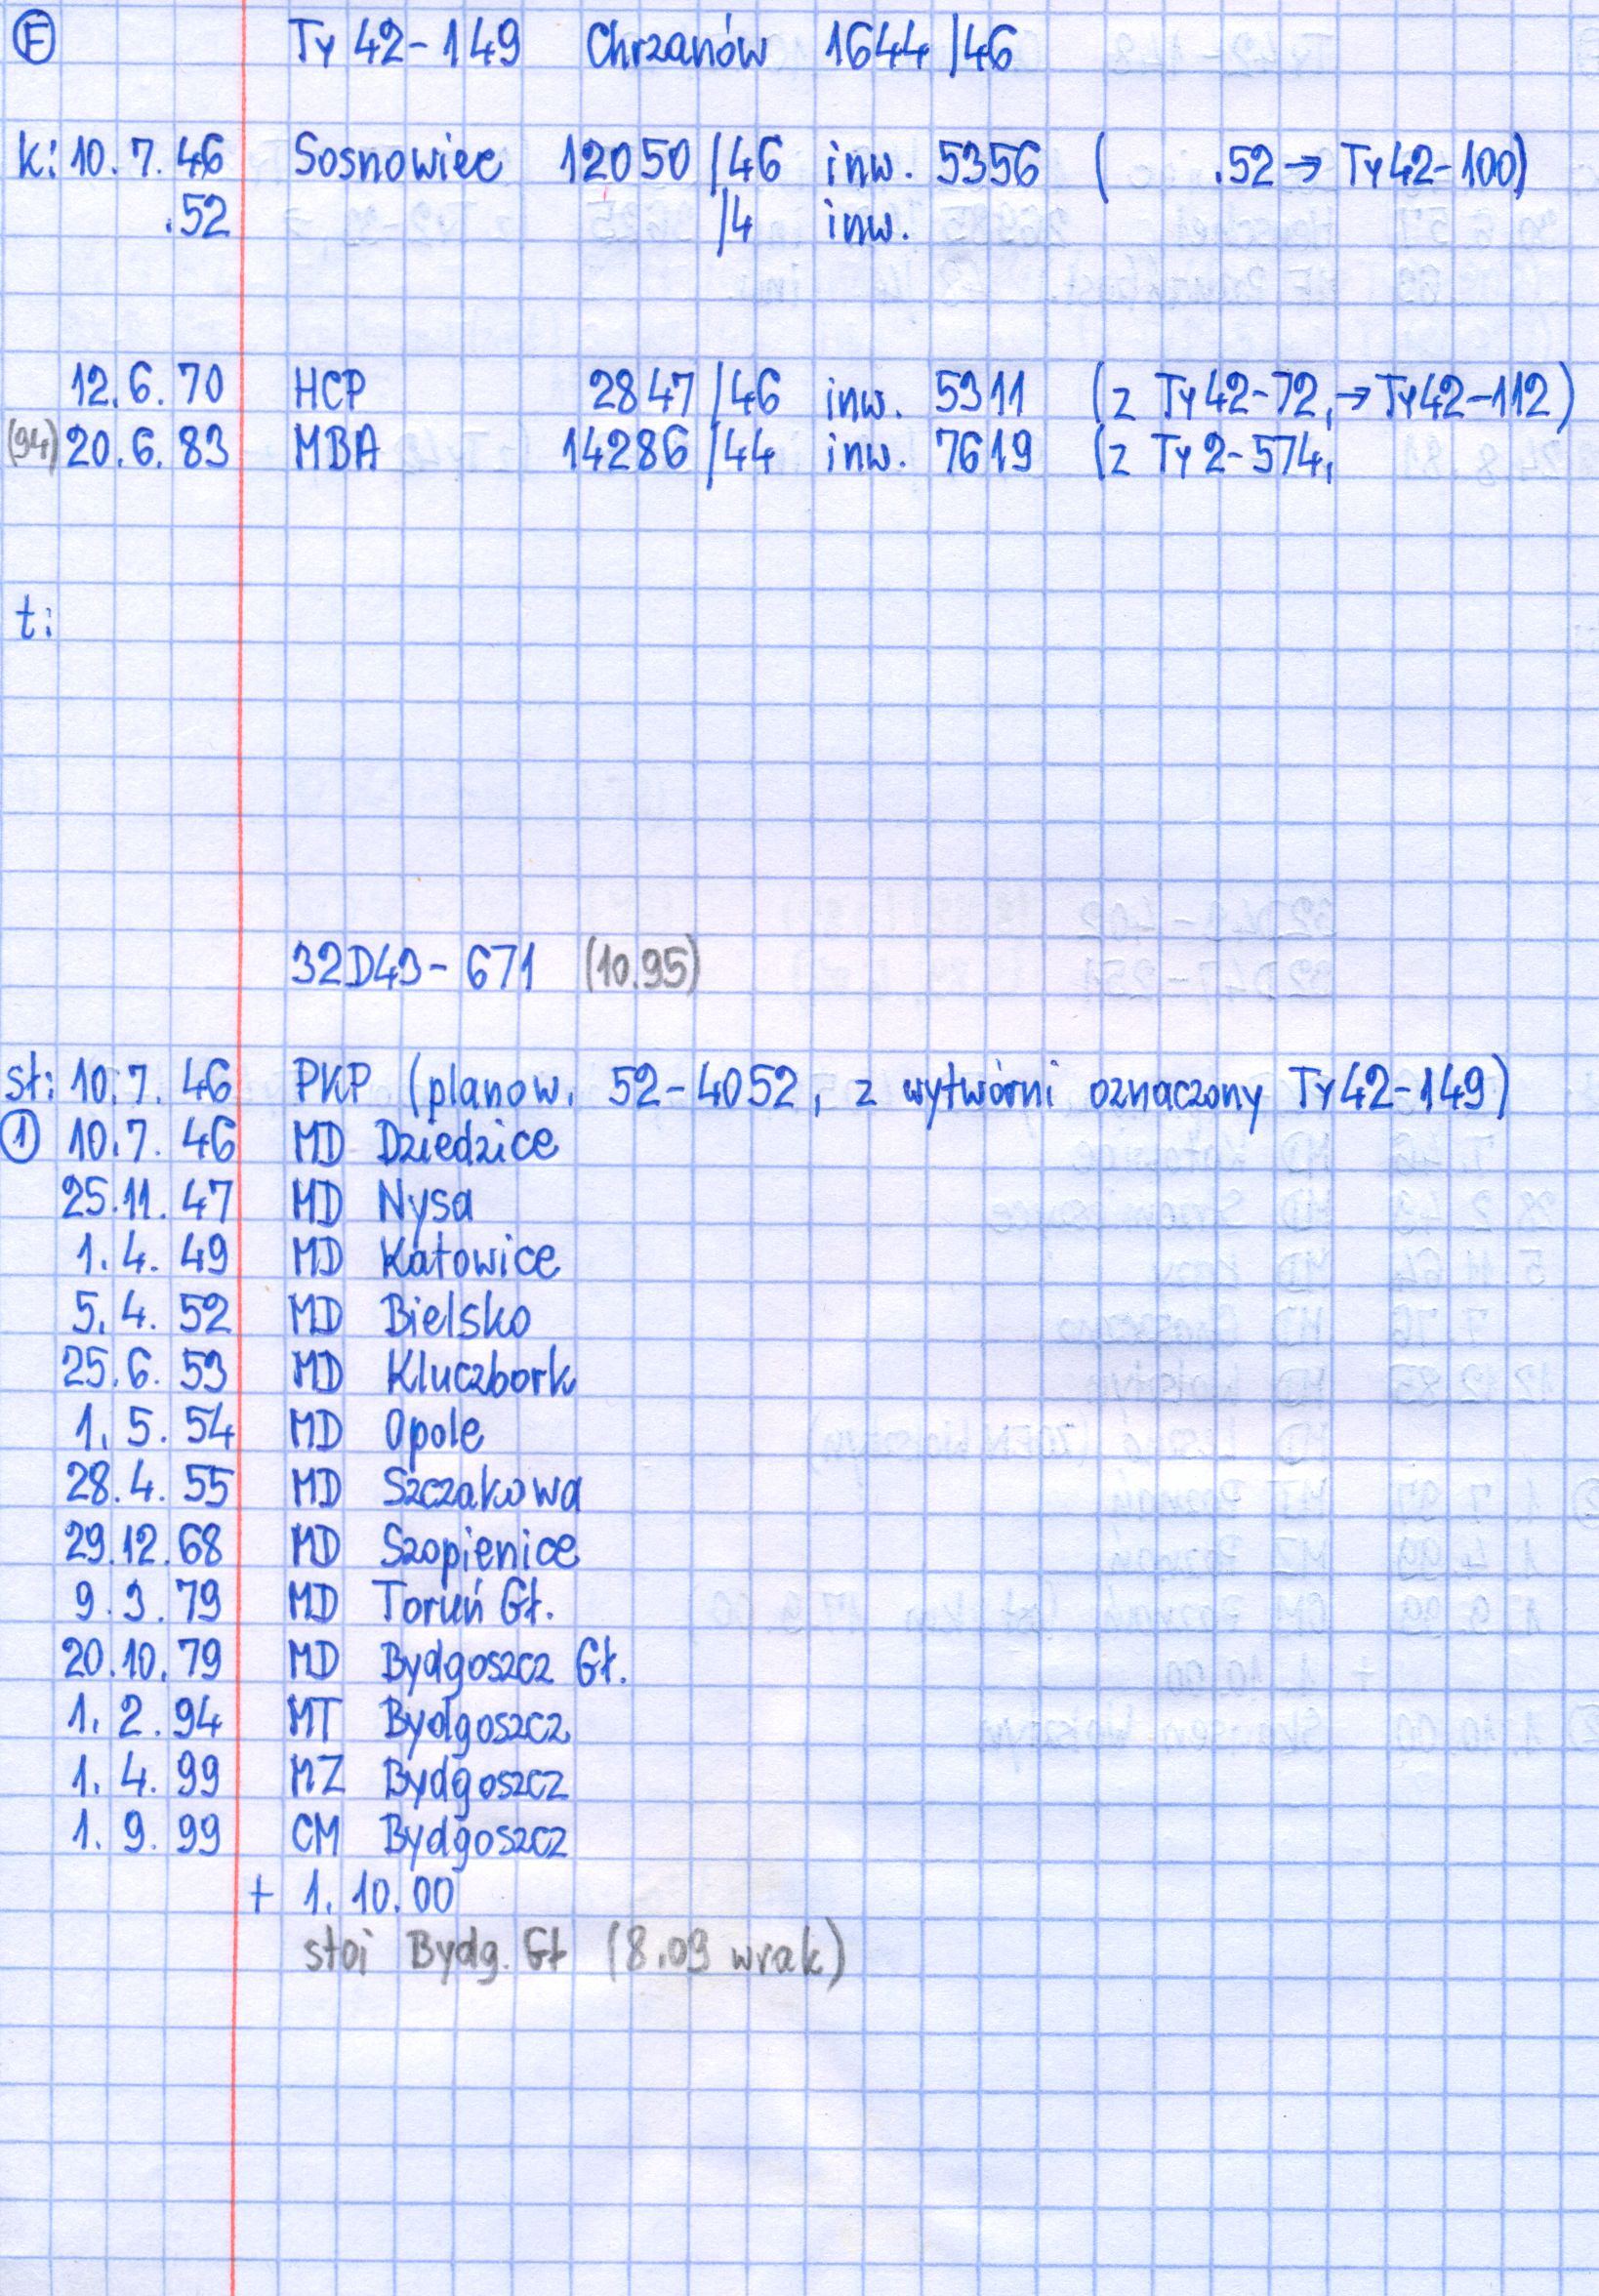 Ⓔ Ty 42-149 Chrzanów 1644/46
k: 10.7.46 Sosnowiec 12050/46 inw. 5356 ( .52 → Ty42-100)
.52 /4 inw.
12.6.70 HCP 2847/46 inw. 5311 (z Ty42-72, → Ty42-112)
(94) 20.6.83 MBA 14286/44 inw. 7619 (z Ty2-574,
t:
32D43-671 (10.95)
sł: 10.7.46 PKP (planow. 52-4052, z wytwórni oznaczony Ty42-149)
① 10.7.46 MD Dziedzice
25.11.47 MD Nysa
1.4.49 MD Katowice
5.4.52 MD Bielsko
25.6.53 MD Kluczbork
1.5.54 MD Opole
28.4.55 MD Szczakowa
29.12.68 MD Szopienice
9.3.79 MD Toruń Gł.
20.10.79 MD Bydgoszcz Gł.
1.2.94 MT Bydgoszcz
1.4.99 MZ Bydgoszcz
1.9.99 CM Bydgoszcz
+ 1.10.00
stoi Bydg. Gł (8.09 wrak)